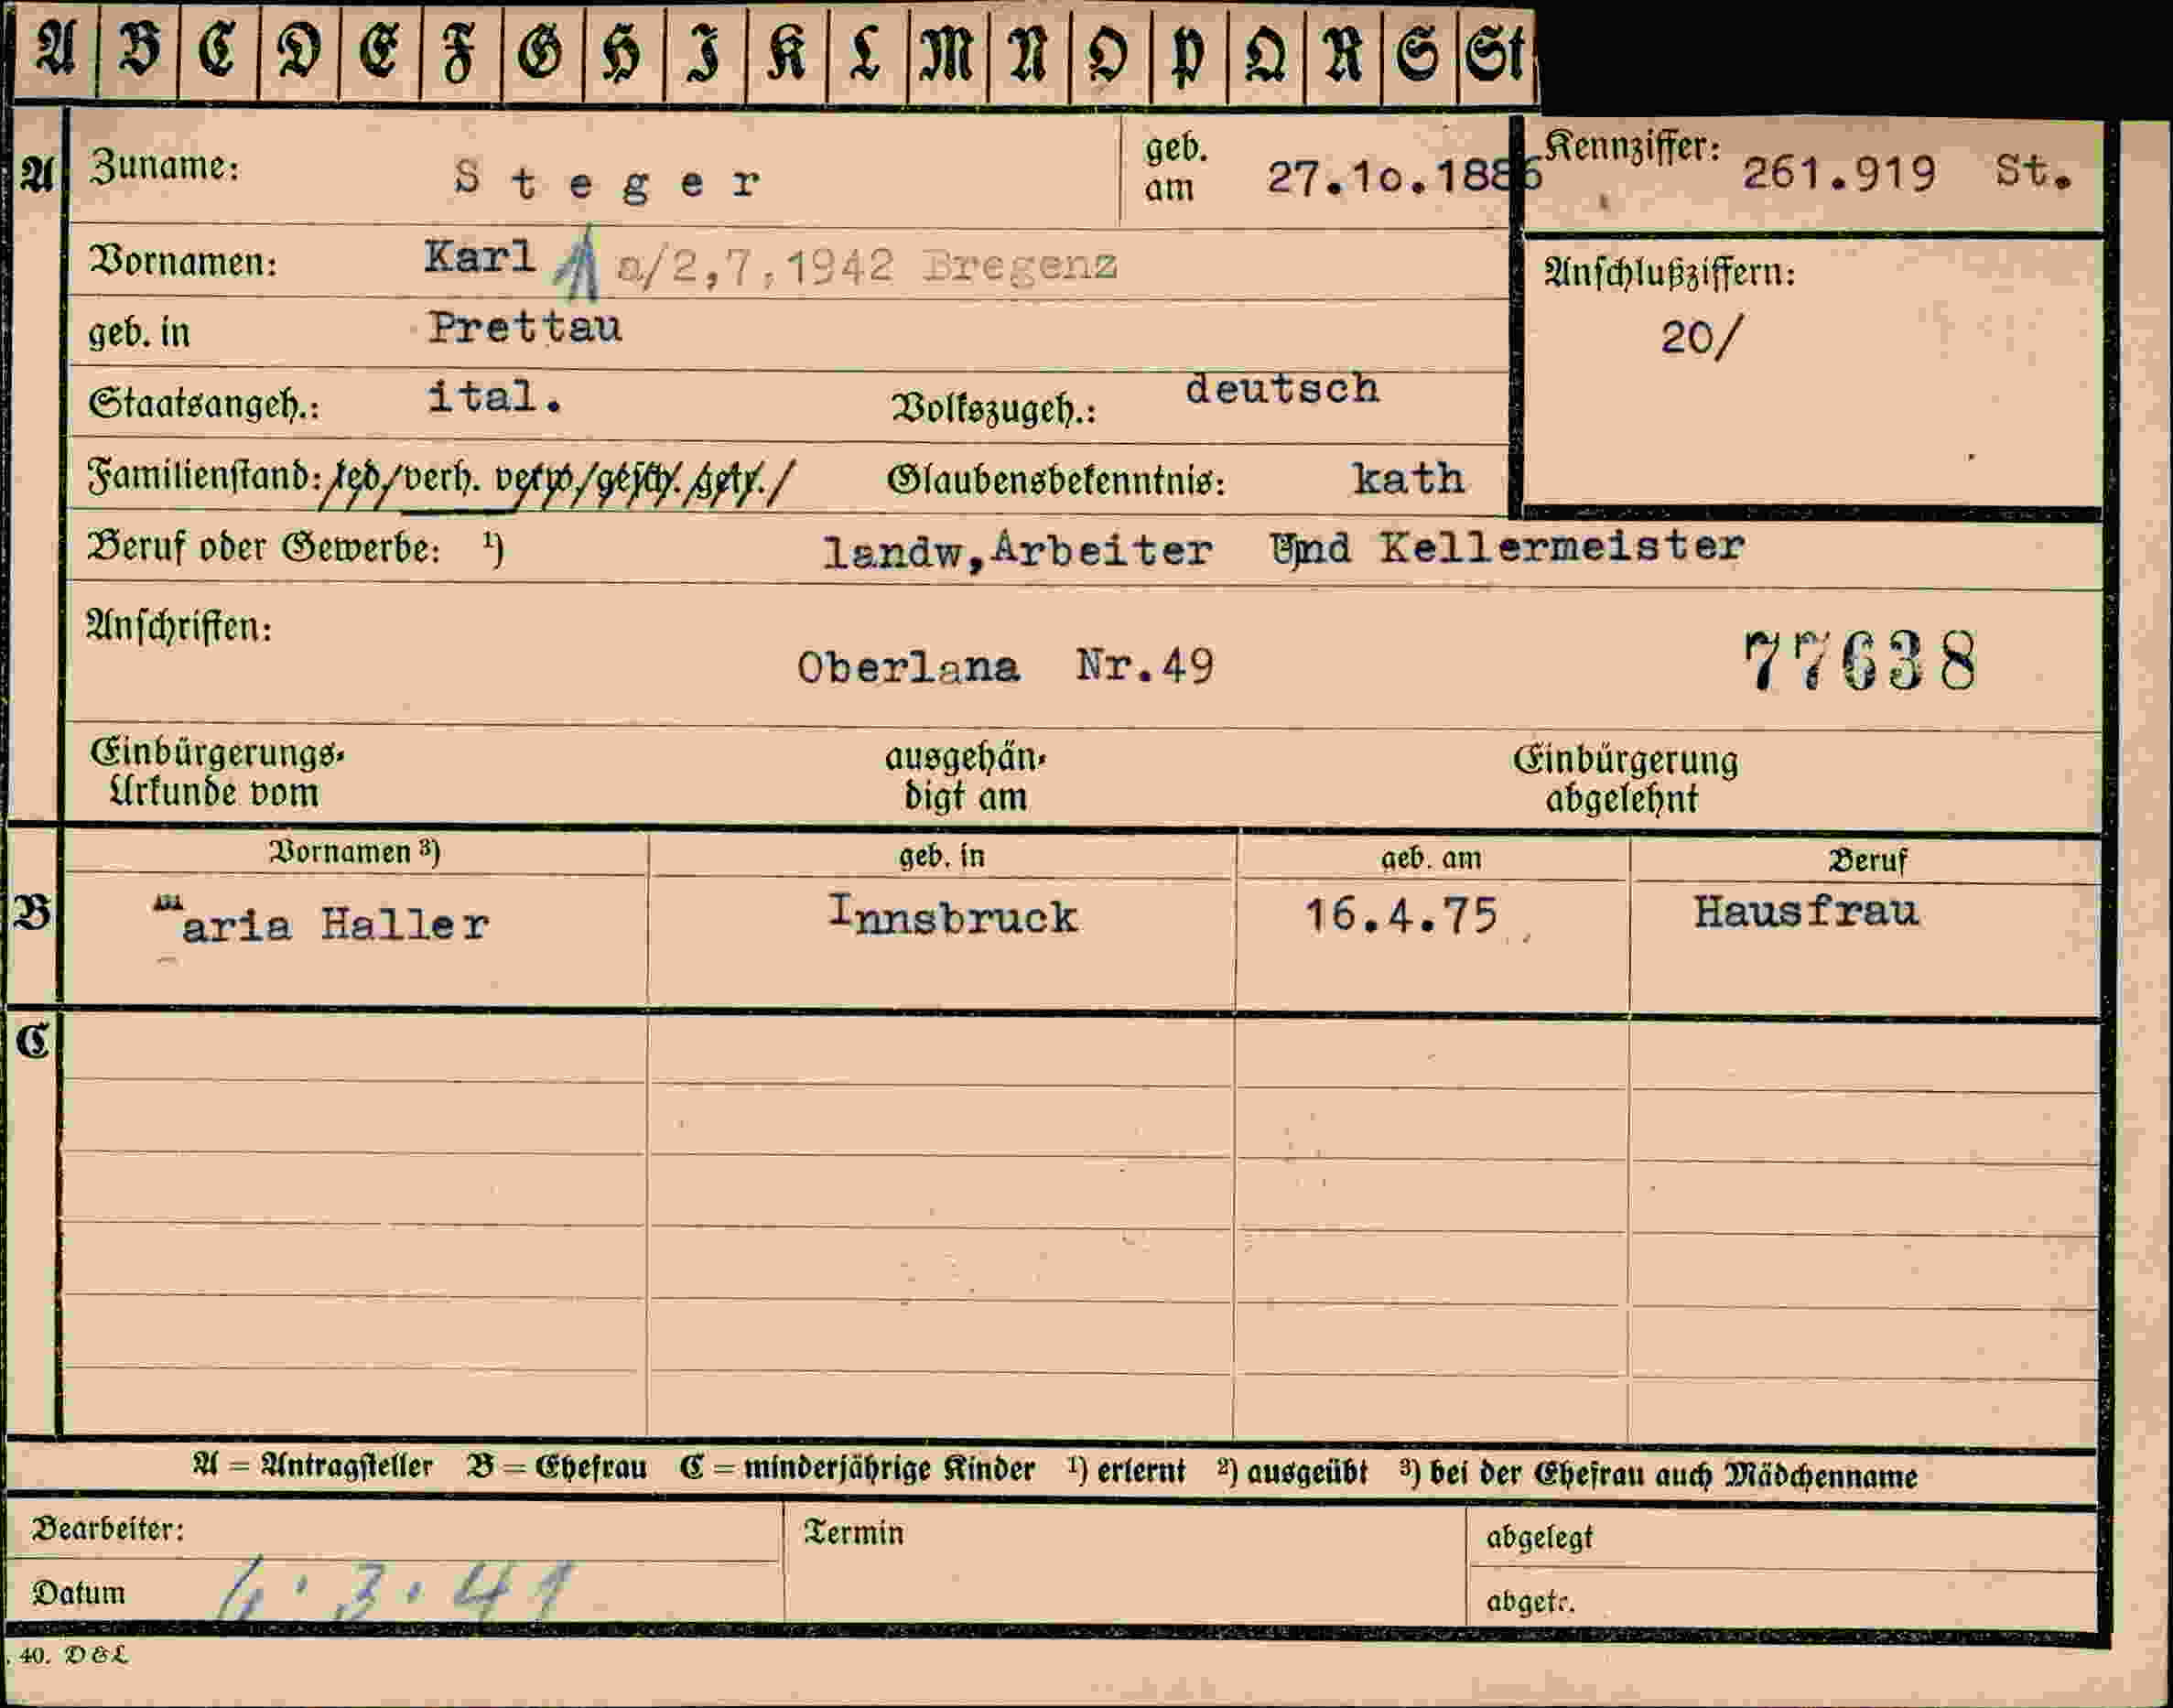 A B C D E F G H I K L M N O P Q R S St
A Zuname: Steger geb. am 27.10.1886 Kennziffer: 261.919 St.
Vornamen: Karl a/2,7,1942 Bregenz
Anschlußziffern:
20/
geb. in Prettau
Staatsangeh.: ital. Volkszugeh.: deutsch
Familienstand: led/verh. verw/gesch./getr./ Glaubensbekenntnis: kath
Beruf oder Gewerbe: ¹) landw,Arbeiter Und Kellermeister
Anschriften:
Oberlana Nr.49 77638
Einbürgerungs- ausgehän- Einbürgerung
Urkunde vom digt am abgelehnt
Vornamen ³) geb. in geb. am Beruf
B Maria Haller Innsbruck 16.4.75 Hausfrau
C
A = Antragsteller B = Ehefrau C = minderjährige Kinder ¹) erlernt ²) ausgeübt ³) bei der Ehefrau auch Mädchenname
Bearbeiter: Termin abgelegt
Datum 3.41 abgetr.
40. D&L